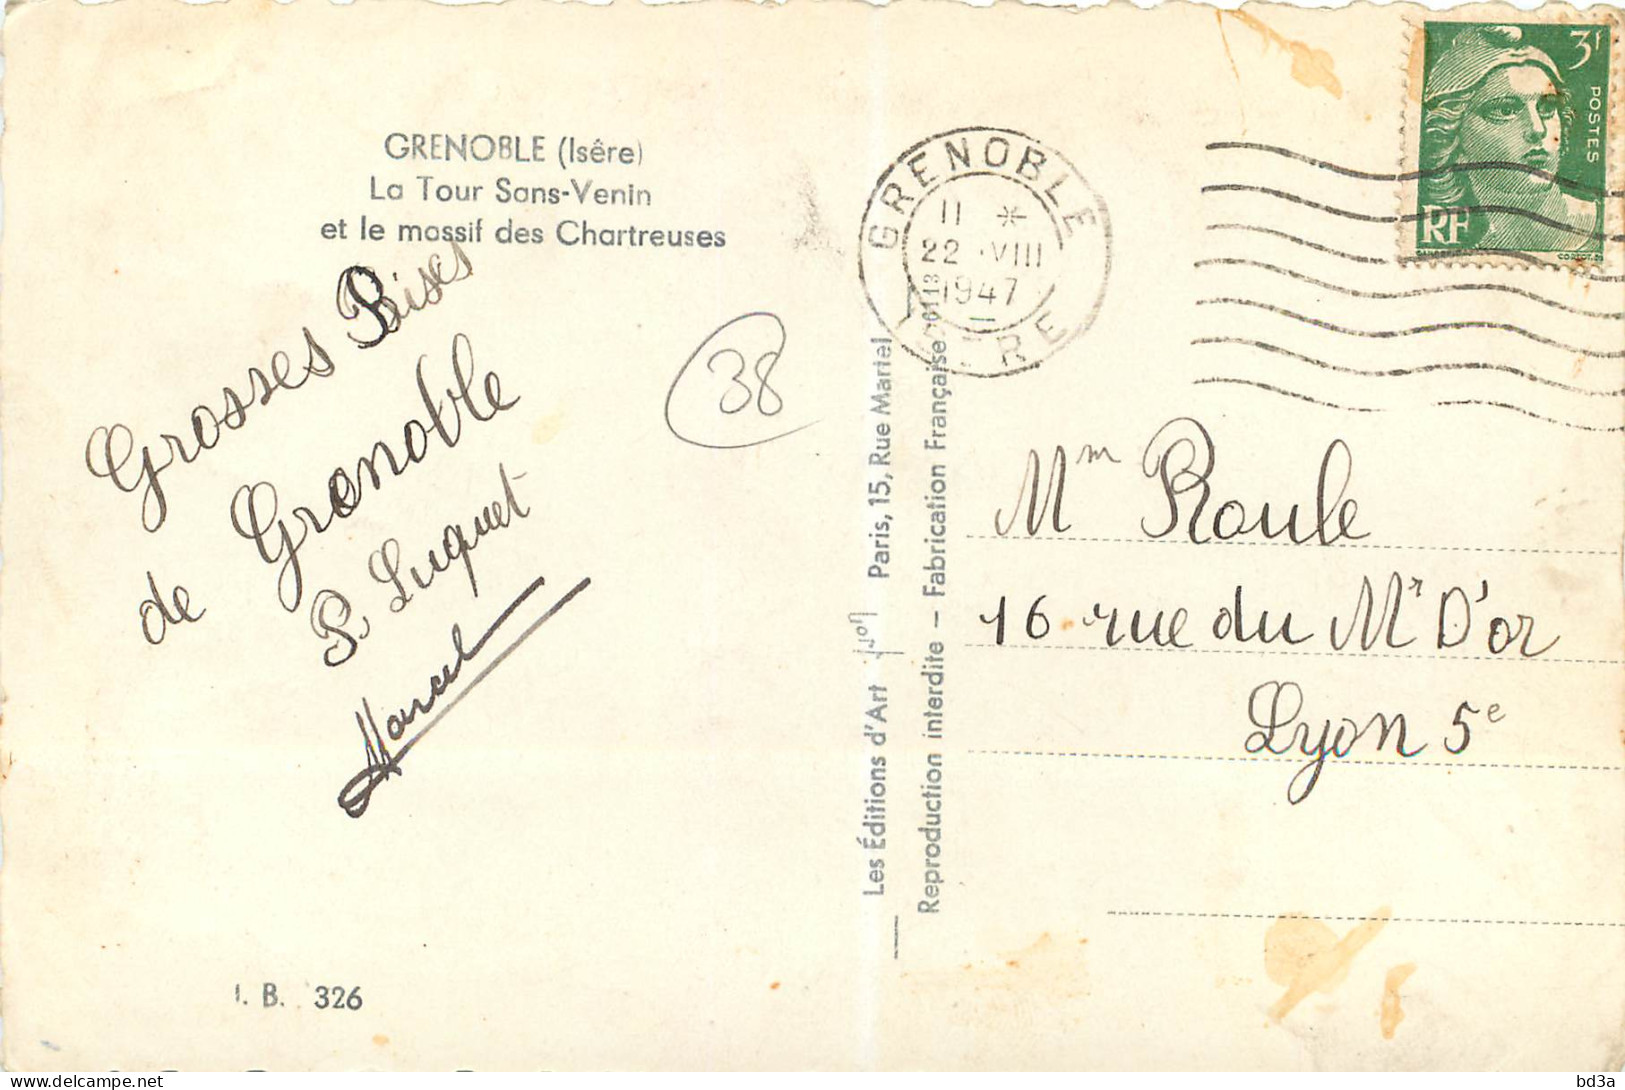 GRENOBLE (Isêre)
La Tour Sans-Venin
et le massif des Chartreuses
Grosses Bises
de Grenoble
P. Luquet
Marcel
38
I. B. 326
Les Éditions d'Art Yvon Paris, 15, Rue Martel
Reproduction interdite – Fabrication Française 6113
GRENOBLE
11 *
22 VIII
1947
ISÈRE
3f
POSTES
RF
GANDON
CORTOT
Mm Roule
16 rue du Mt D'or
Lyon 5e
bd3a